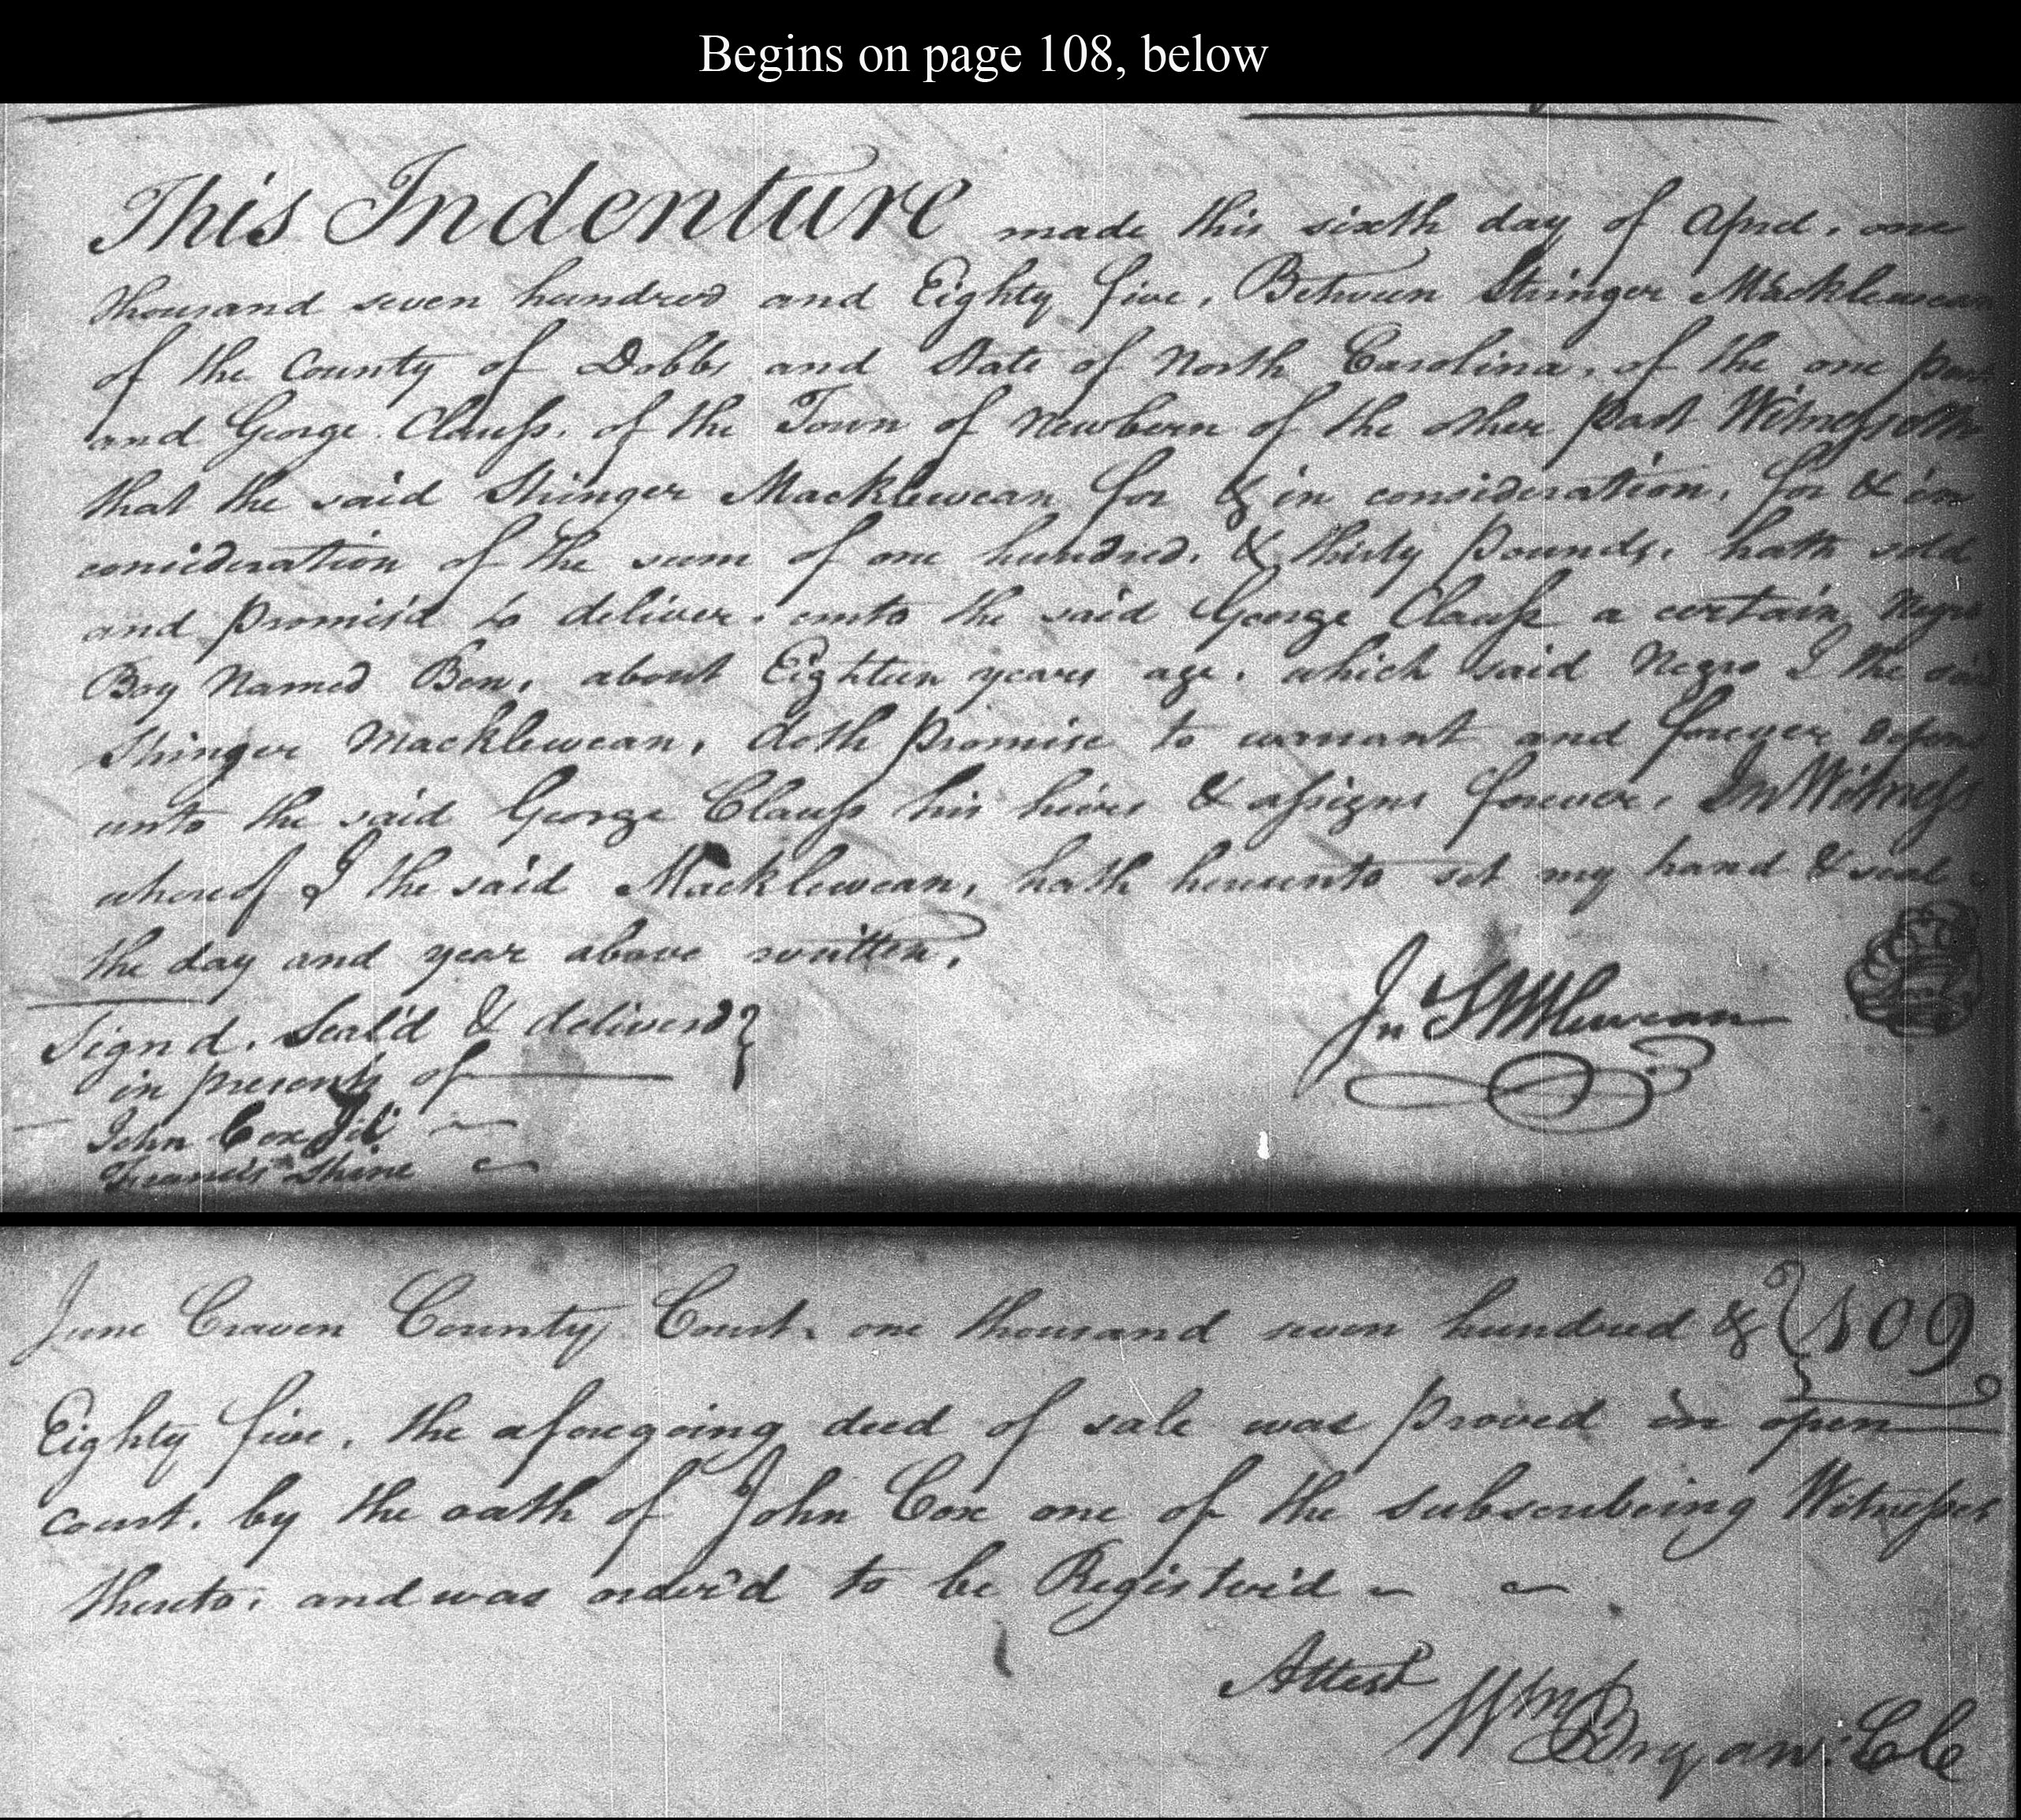 Begins on page 108, below
This Indenture made this sixth day of April, one
thousand seven hundred and Eighty five, Between Stringer Macklewean
of the County of Dobbs and State of North Carolina, of the one part
and George Clauss, of the Town of Newbern of the other part Witnesseth
that the said Stringer Macklewean for & in consideration, for & in
consideration of the sum of one hundred, & thirty Pounds, hath sold
and promis'd to deliver, unto the said George Clauss a certain Negro
Boy Named Ben, about Eighteen years age, which said Negro I the said
Stringer Macklewean, doth promise to warrant and forever defend
unto the said George Clauss his heirs & assigns forever, In Witness
whereof I the said Macklewean, hath hereunto set my hand & seal
the day and year above written,
Signd. Seal'd & deliverd
in presents of
Jn° S McKlewean
John Cox
Francis Shine
June Craven County Court, one thousand seven hundred & 109
Eighty five, the aforegoing deed of sale was proved in open
court, by the oath of John Cox one of the subscribeing Witnesses
thereto, and was order'd to be Register'd
Attest
Wm Bryan. Clc